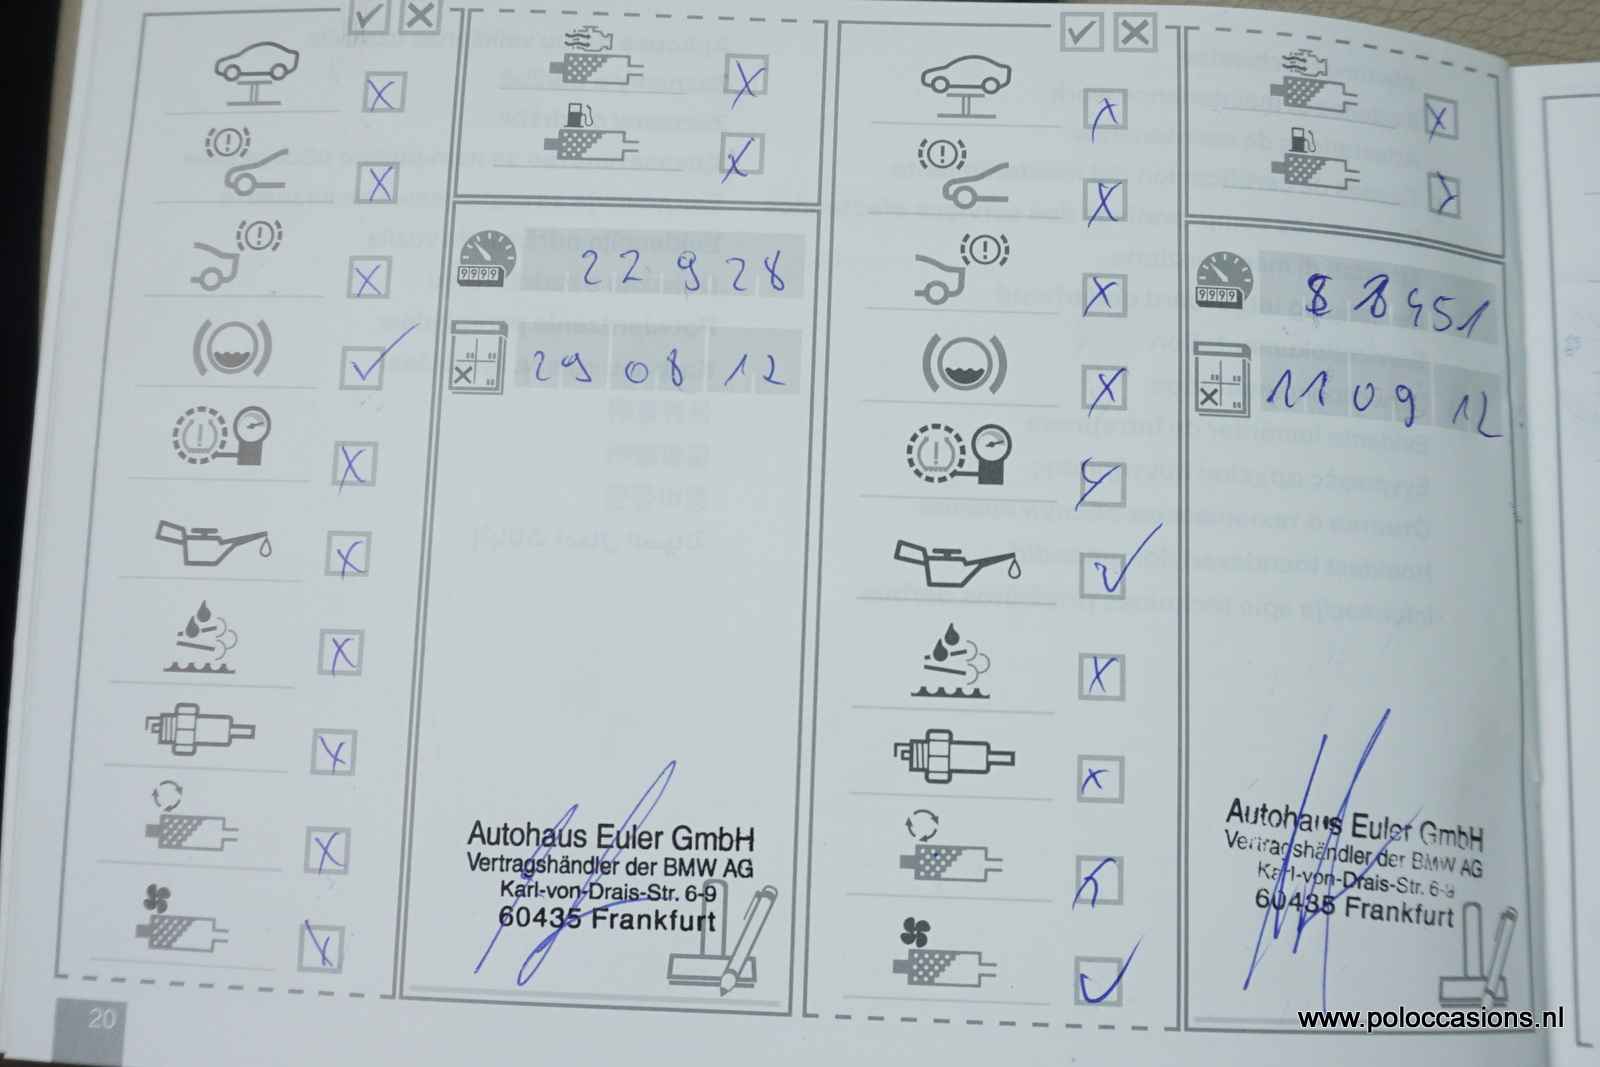 22928
29 08 12
Autohaus Euler GmbH
Vertragshändler der BMW AG
Karl-von-Drais-Str. 6-9
60435 Frankfurt
20
451
11 09 12
Autohaus Euler GmbH
Vertragshändler der BMW AG
Karl-von-Drais-Str. 6-9
60435 Frankfurt
www.poloccasions.nl